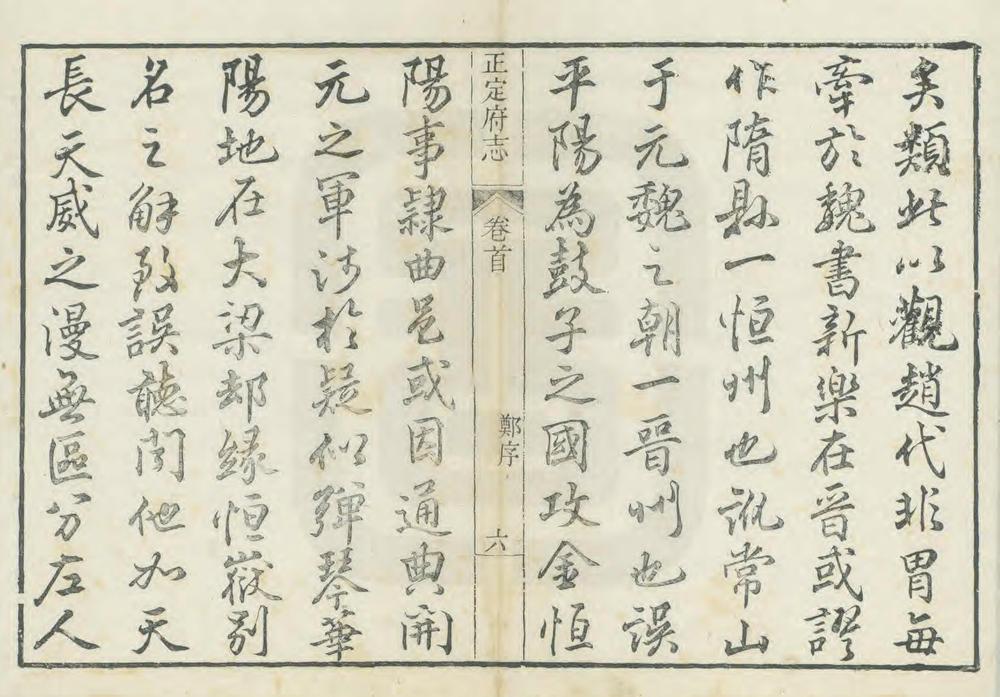 矣類此以觀趙代非胃每
牽於魏書新樂在晉或謬
作隋縣一恒州也訛常山
于元魏之朝一晉州也誤
平陽為鼓子之國攻金恒
正定府志
卷首
鄭序
六
陽事隷曲邑或因通典開
元之軍涉於疑似彈琴葦
陽地在大梁却緣恒嶽别
名之解致誤聽聞他如天
長天威之漫無區分左人